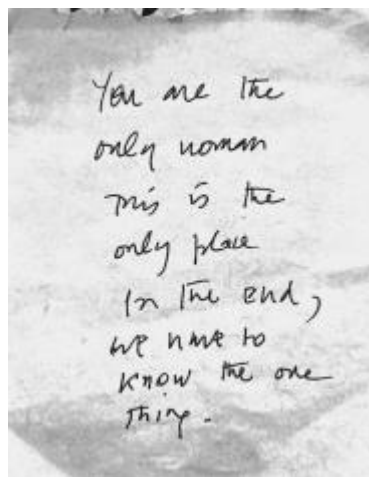 You are the
only woman
This is the
only place
In the end,
we have to
know the one
thing.